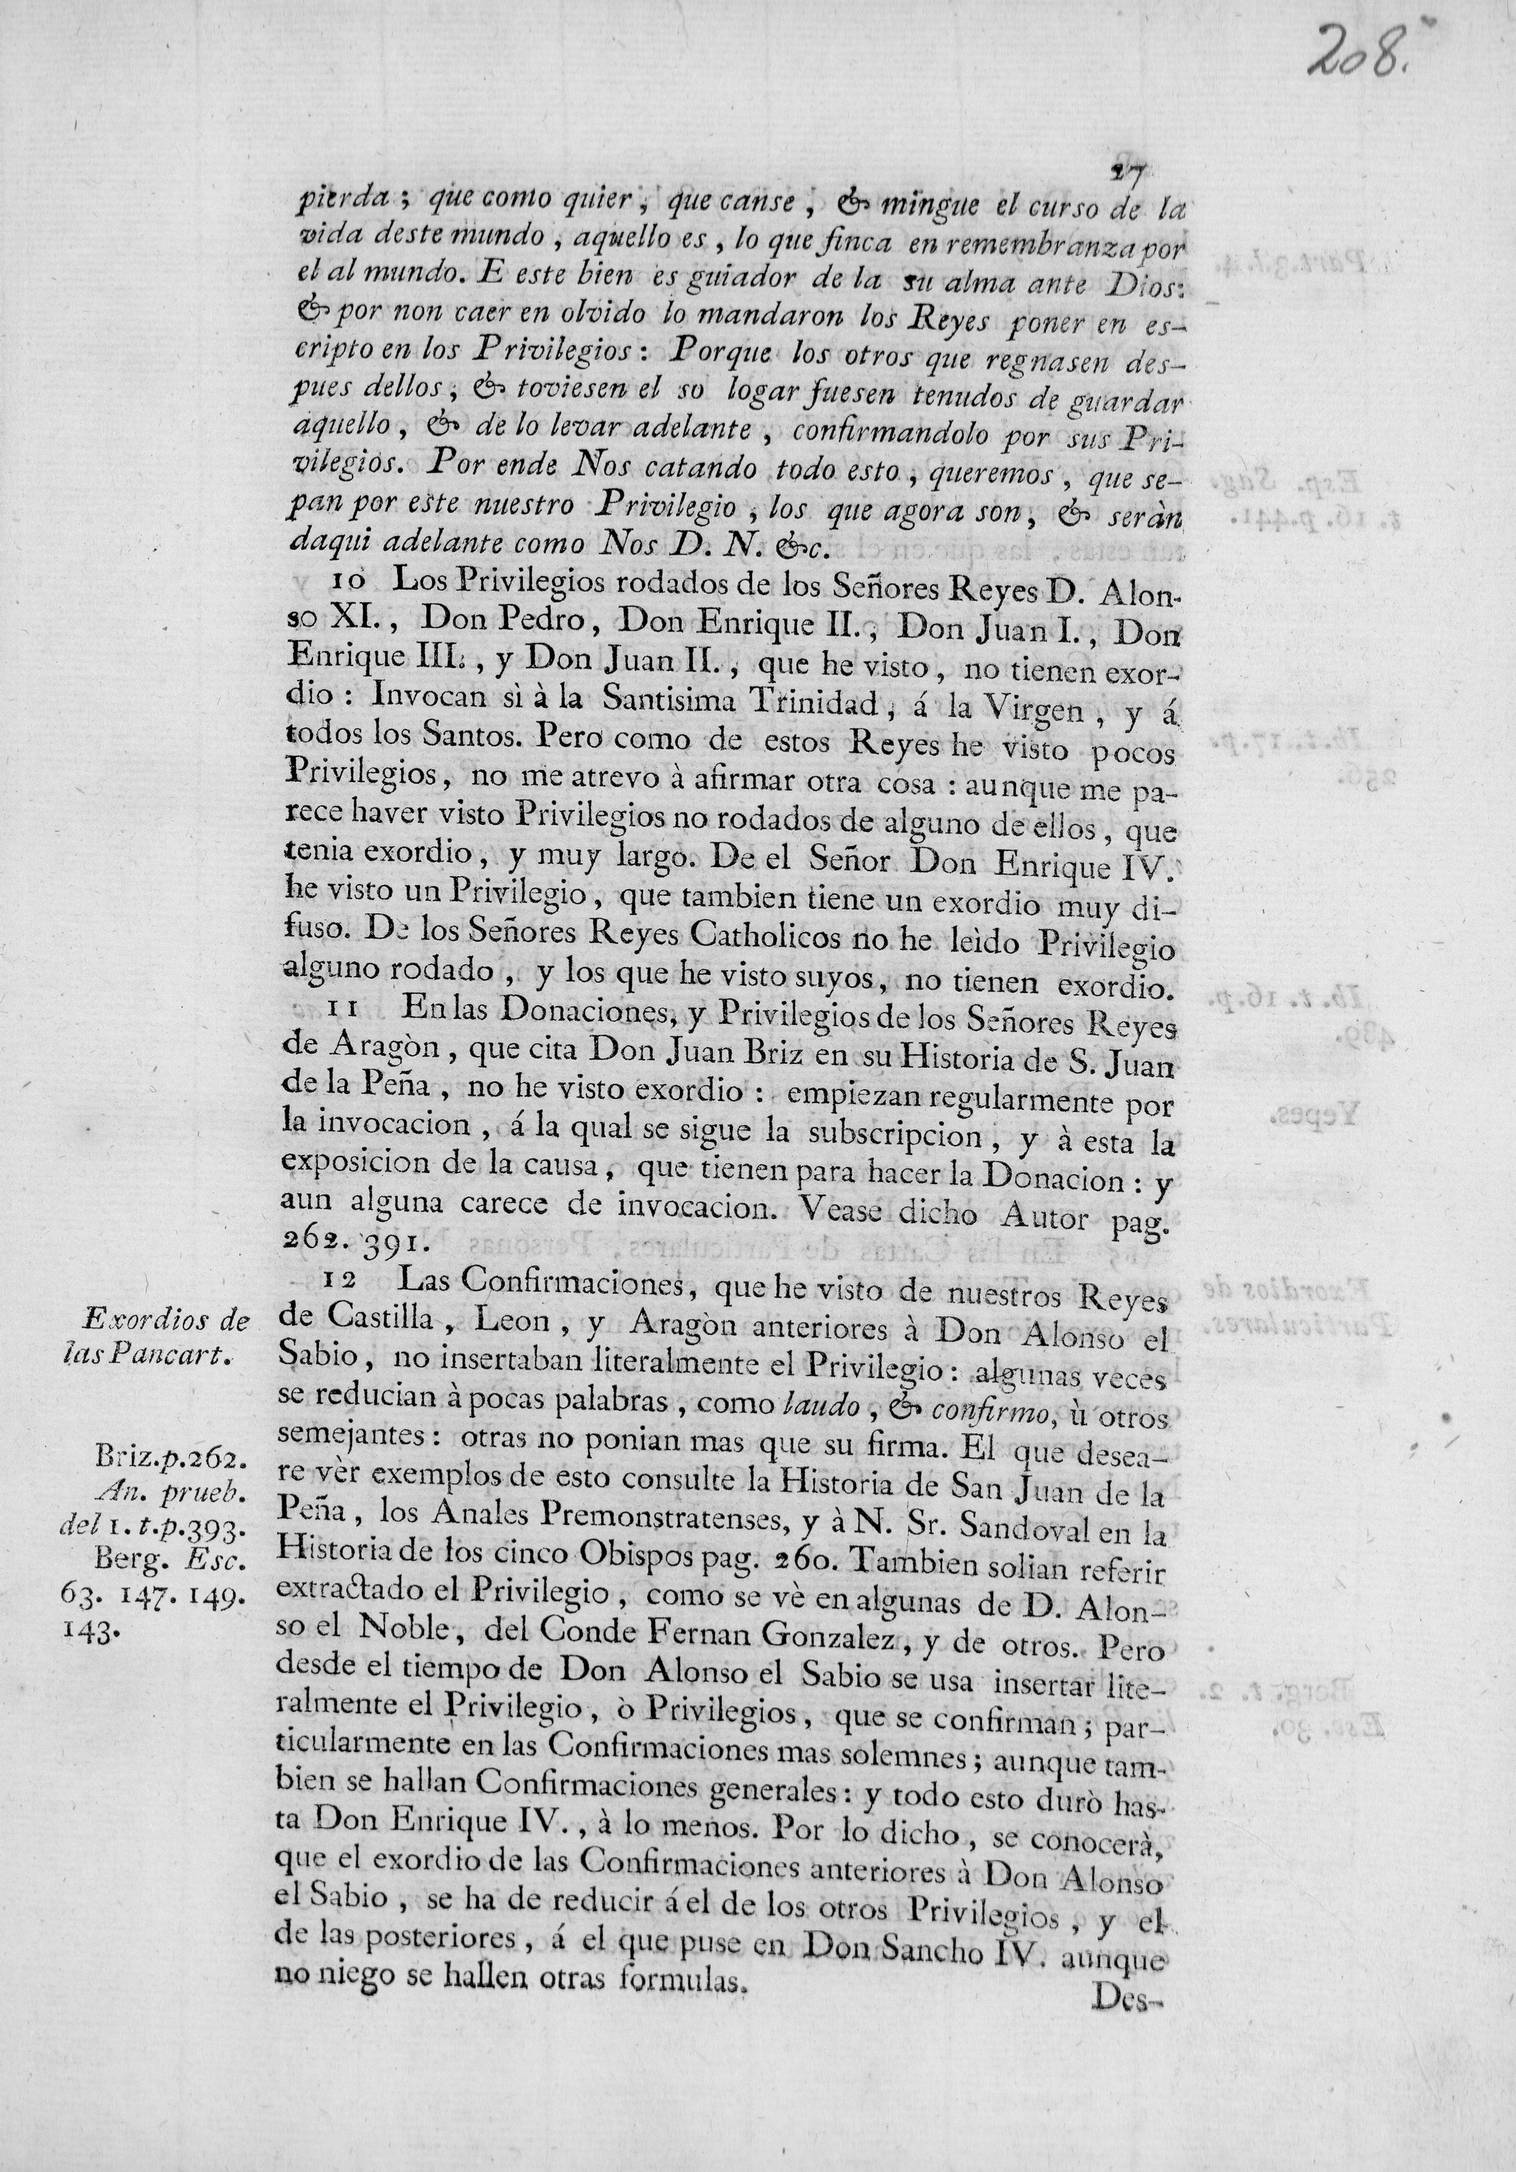 208.
27
pierda ; que como quier , que canse , & mingue el curso de la
vida deste mundo , aquello es , lo que finca en remembranza por
el al mundo. E este bien es guiador de la su alma ante Dios:
& por non caer en olvido lo mandaron los Reyes poner en es-
cripto en los Privilegios : Porque los otros que regnasen des-
pues dellos , & toviesen el so logar fuesen tenudos de guardar
aquello , & de lo levar adelante , confirmandolo por sus Pri-
vilegios. Por ende Nos catando todo esto , queremos , que se-
pan por este nuestro Privilegio , los que agora son , & seràn
daqui adelante como Nos D. N. &c.
10 Los Privilegios rodados de los Señores Reyes D. Alon-
so XI. , Don Pedro , Don Enrique II. , Don Juan I. , Don
Enrique III. , y Don Juan II. , que he visto , no tienen exor-
dio : Invocan sì à la Santisima Trinidad , á la Virgen , y á
todos los Santos. Pero como de estos Reyes he visto pocos
Privilegios , no me atrevo à afirmar otra cosa : aunque me pa-
rece haver visto Privilegios no rodados de alguno de ellos , que
tenia exordio , y muy largo. De el Señor Don Enrique IV.
he visto un Privilegio , que tambien tiene un exordio muy di-
fuso. De los Señores Reyes Catholicos no he leìdo Privilegio
alguno rodado , y los que he visto suyos , no tienen exordio.
11 En las Donaciones, y Privilegios de los Señores Reyes
de Aragòn , que cita Don Juan Briz en su Historia de S. Juan
de la Peña , no he visto exordio : empiezan regularmente por
la invocacion , á la qual se sigue la subscripcion , y à esta la
exposicion de la causa , que tienen para hacer la Donacion : y
aun alguna carece de invocacion. Vease dicho Autor pag.
262. 391.
12 Las Confirmaciones, que he visto de nuestros Reyes
Exordios de
las Pancart.
de Castilla , Leon , y Aragòn anteriores à Don Alonso el
Sabio , no insertaban literalmente el Privilegio : algunas veces
se reducian à pocas palabras , como laudo , & confirmo, ù otros
semejantes : otras no ponian mas que su firma. El que desea-
Briz.p.262.
An. prueb.
del 1. t.p.393.
Berg. Esc.
63. 147. 149.
143.
re vèr exemplos de esto consulte la Historia de San Juan de la
Peña , los Anales Premonstratenses, y à N. Sr. Sandoval en la
Historia de los cinco Obispos pag. 260. Tambien solian referir
extractado el Privilegio , como se vè en algunas de D. Alon-
so el Noble, del Conde Fernan Gonzalez, y de otros. Pero
desde el tiempo de Don Alonso el Sabio se usa insertar lite-
ralmente el Privilegio , ò Privilegios , que se confirman ; par-
ticularmente en las Confirmaciones mas solemnes ; aunque tam-
bien se hallan Confirmaciones generales : y todo esto durò has-
ta Don Enrique IV. , à lo menos. Por lo dicho , se conocerà,
que el exordio de las Confirmaciones anteriores à Don Alonso
el Sabio , se ha de reducir á el de los otros Privilegios , y el
de las posteriores , á el que puse en Don Sancho IV. aunque
no niego se hallen otras formulas.
Des-